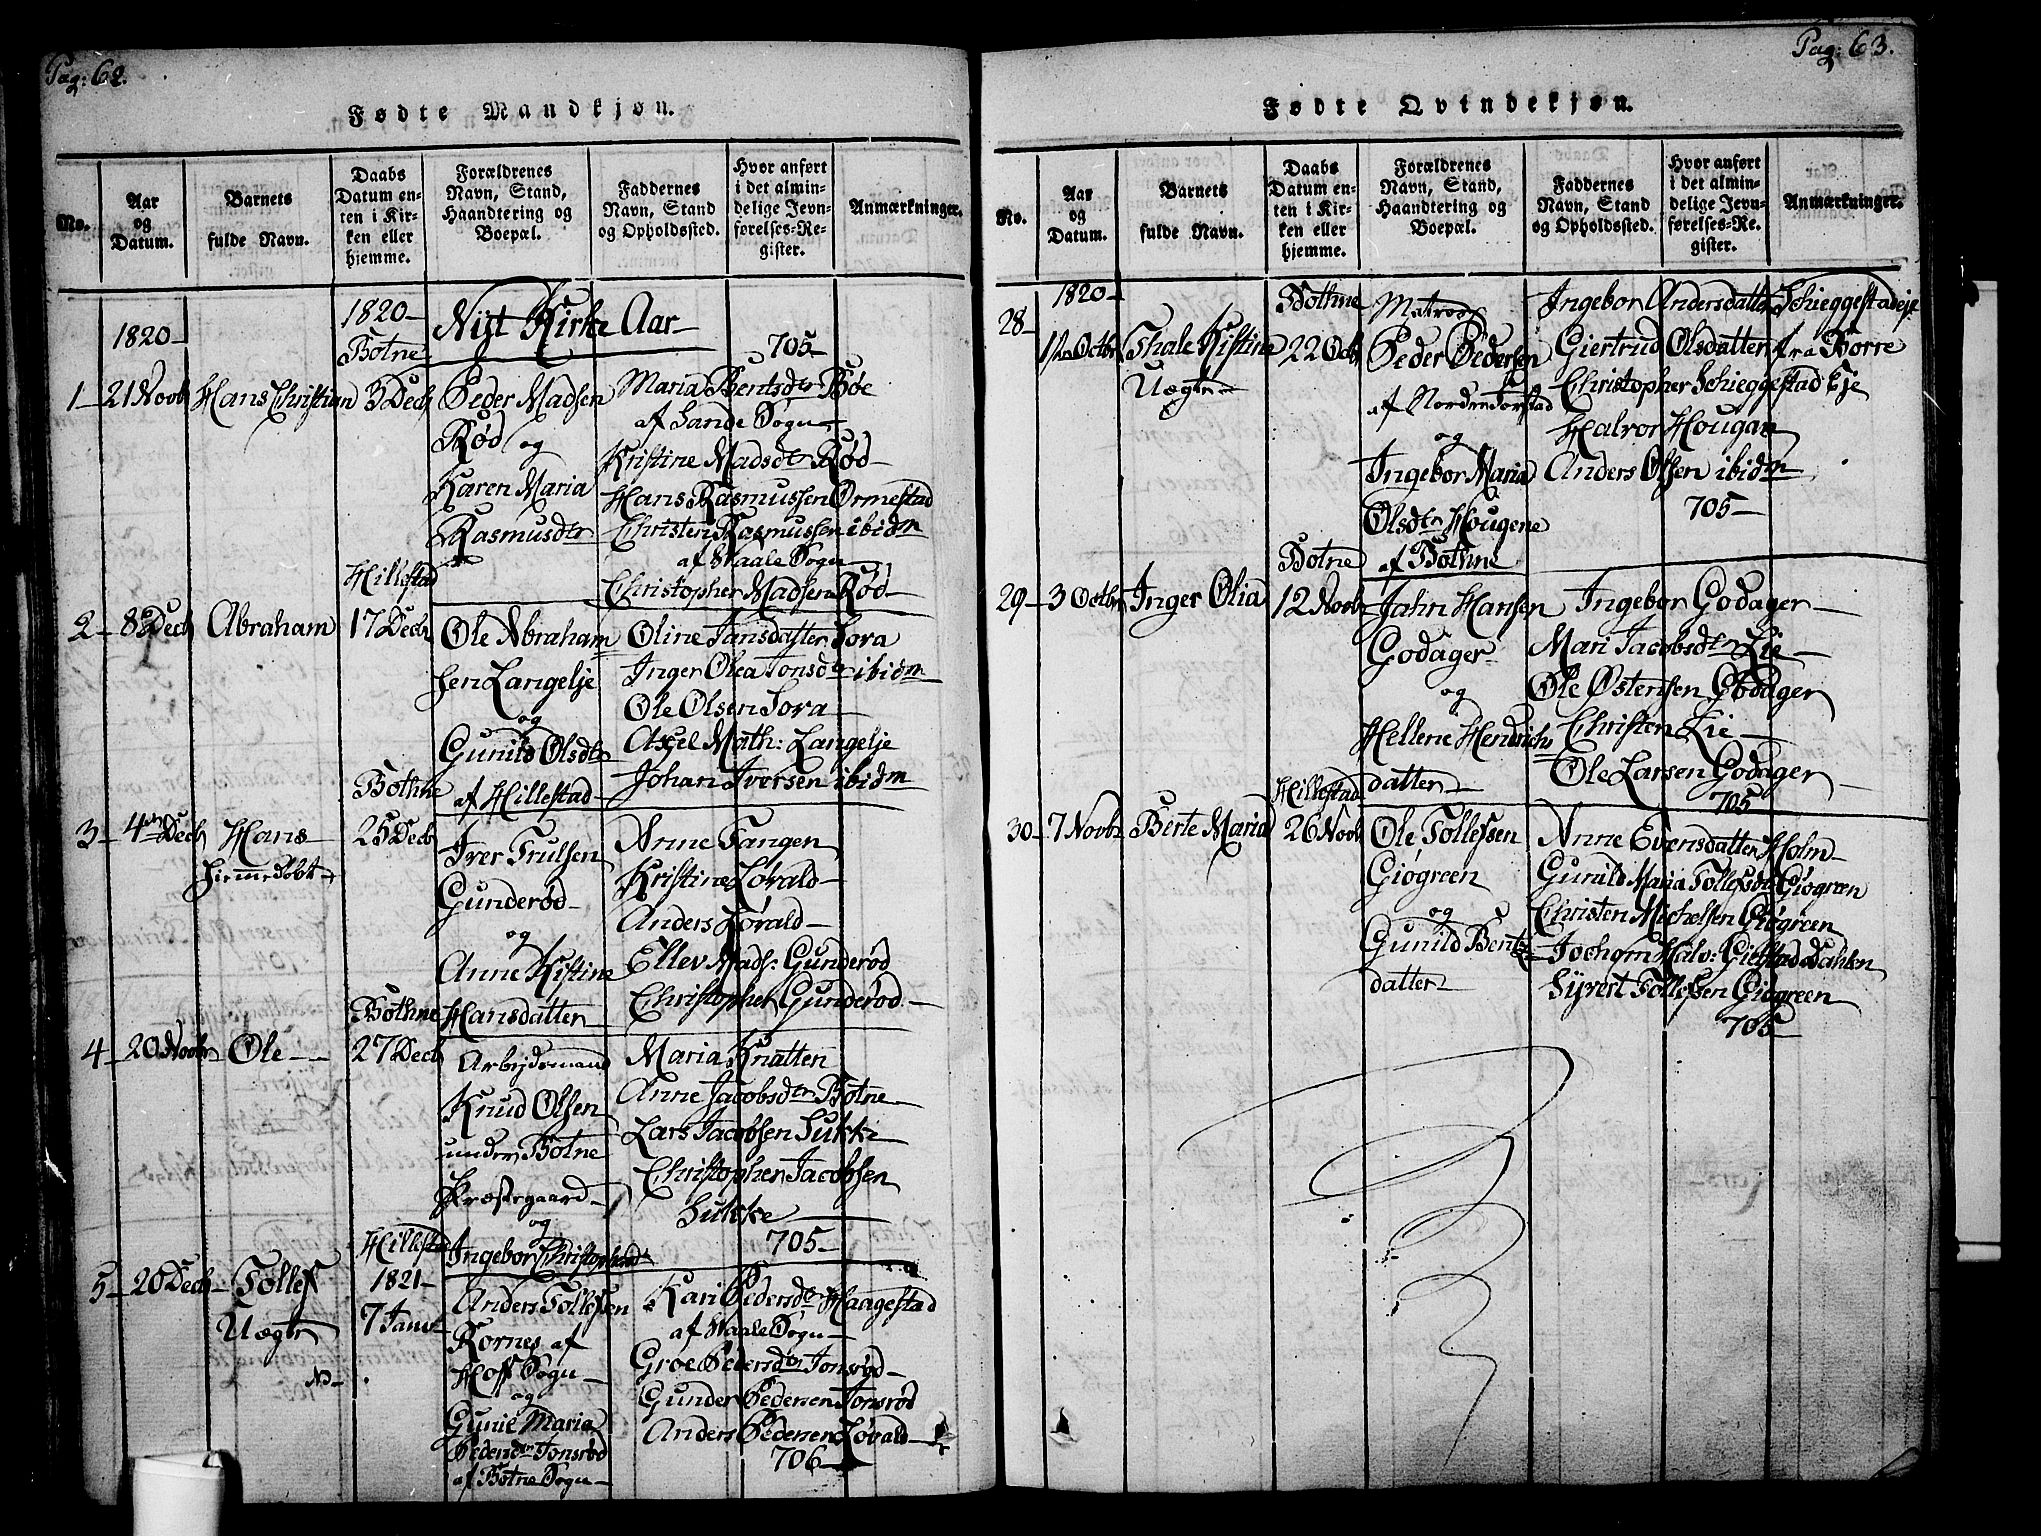 Pag: 62.
Fødte Mandkjøn.
No.
Aar
og
Datum.
Barnets
fulde Navn.
Daabs
Datum en-
ten i Kir-
ken eller
hjemme.
Forældrenes
Navn, Stand,
Haandtering og
Boepæl.
Faddernes
Navn, Stand
og Opholdssted.
Hvor anført
i det almin-
delige Jevn-
førelses-Re-
gister.
Anmærkninger.
1820
1820
Botne
Nyt Kirke Aar
705
1 21 Novb Hans Christian 3 Decb
Peder Madsen
Rød og
Karen Maria
Rasmusdtr
Maria Bentsdtr Bøe
af Sande Sogn
Kristine Madsdtr Rød
Hans Rasmussen Ormestad
Christen Rasmussen ibidm
af Waale Sogn
Christopher Madsen Rød
Hillestad
2 8 Decb Abraham 17 Decb
Ole Abraham
sen Langelje
og
Gunild Olsdtr
af Hillestad
Oline Jansdatter Sora
Inger Olea Jonsdtr ibidm
Ole Olsen Sora
Axel Math: Langelje
Johan Iversen ibidm
Bothne
3 4 Decb Hans 25 Decb
Hiemmedøbt
Iver Trulsen
Gunderød
og
Anne Kistine
Hansdatter
Anne Tangen
Kristine Løvald
Anders Løvald
Ellev Mads: Gunderød
Christopher Gunderød
Bothne
4 20 Novbr Ole 27 Decb
Arbejdsmand
Knud Olsen
under Botne
Præstegaard
og
Ingebor Christophersd
Maria Knatten
Anne Jacobsdtr Botne
Lars Jacobsen Sukke
Christopher Jacobsen
Sukke
705
Hillestad
1821
5 20 Decb Tollef 7 Janv
Uægte
Anders Tollefsen
Kornes af
Hoff Sogn
og
Gunie Maria
Pedersdtr Jonsrød
af Botne Sogn
Kari Pedersdtr Haagestad
af Waale Sogn
Groe Pedersdtr Jonsrød
Gunder Pedersen Jonsrød
Anders Pedersen Løvald
706
Pag: 63.
Fødte Qvindekjøn.
No.
Aar
og
Datum.
Barnets
fulde Navn.
Daabs
Datum en-
ten i Kir-
ken eller
hjemme.
Forældrenes
Navn, Stand,
Haandtering og
Boepæl.
Faddernes
Navn, Stand
og Opholdssted.
Hvor anført
i det almin-
delige Jevn-
førelses-Re-
gister.
Anmærkninger.
1820
Bothne
28 Octbr Thale Kistine 22 Octb
Uægte
Matros
Peder Pedersen
af Nordre
og
Ingebor Maria
Olsdtr Hougene
af Bothne
Ingebor Andersdatter Schieggestadeje
Giertrud Olsdatter fra Borre
Christopher Schieggestad Eje
Halvor Hougan
Anders Olsen ibidm
705
Botne
29 3 Octbr Inger Olia 12 Novb
Jahn Hansen
Godager
og
Hellene Hendrichs
datter
Ingebor Godager
Mari Jacobsdtr Lie
Ole Østensen Godager
Christen Lie
Ole Larsen Godager
705
Hillestad
30 7 Novbr Berte Maria 26 Novb
Ole Tollefsen
Giøgreen
og
Gunild Bentz
datter
Anne Evensdatter Holm
Gunild Maria Tollefsdtr Giøgreen
Christen Michelsen Giøgreen
Jochom Halv: Dahlen
Syvert Tollefsen Giøgreen
705